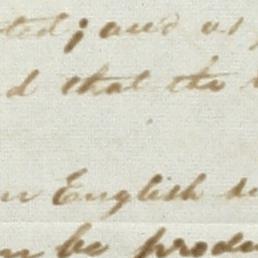 ; and as
d that the
English
be produ